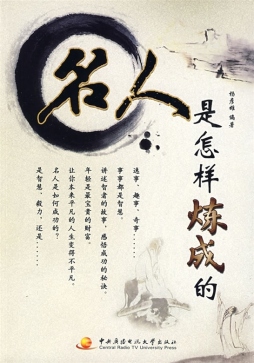 名人
是怎样炼成的
编著
逸事、趣事、奇事……
事事都是智慧。
讲述智者的故事，感悟成功的秘诀。
年轻是最宝贵的财富。
让你本来平凡的人生变得不平凡。
名人是如何成功的？
是智慧，毅力，还是……
中央廣播電視大學出版社
Central Radio TV University Press